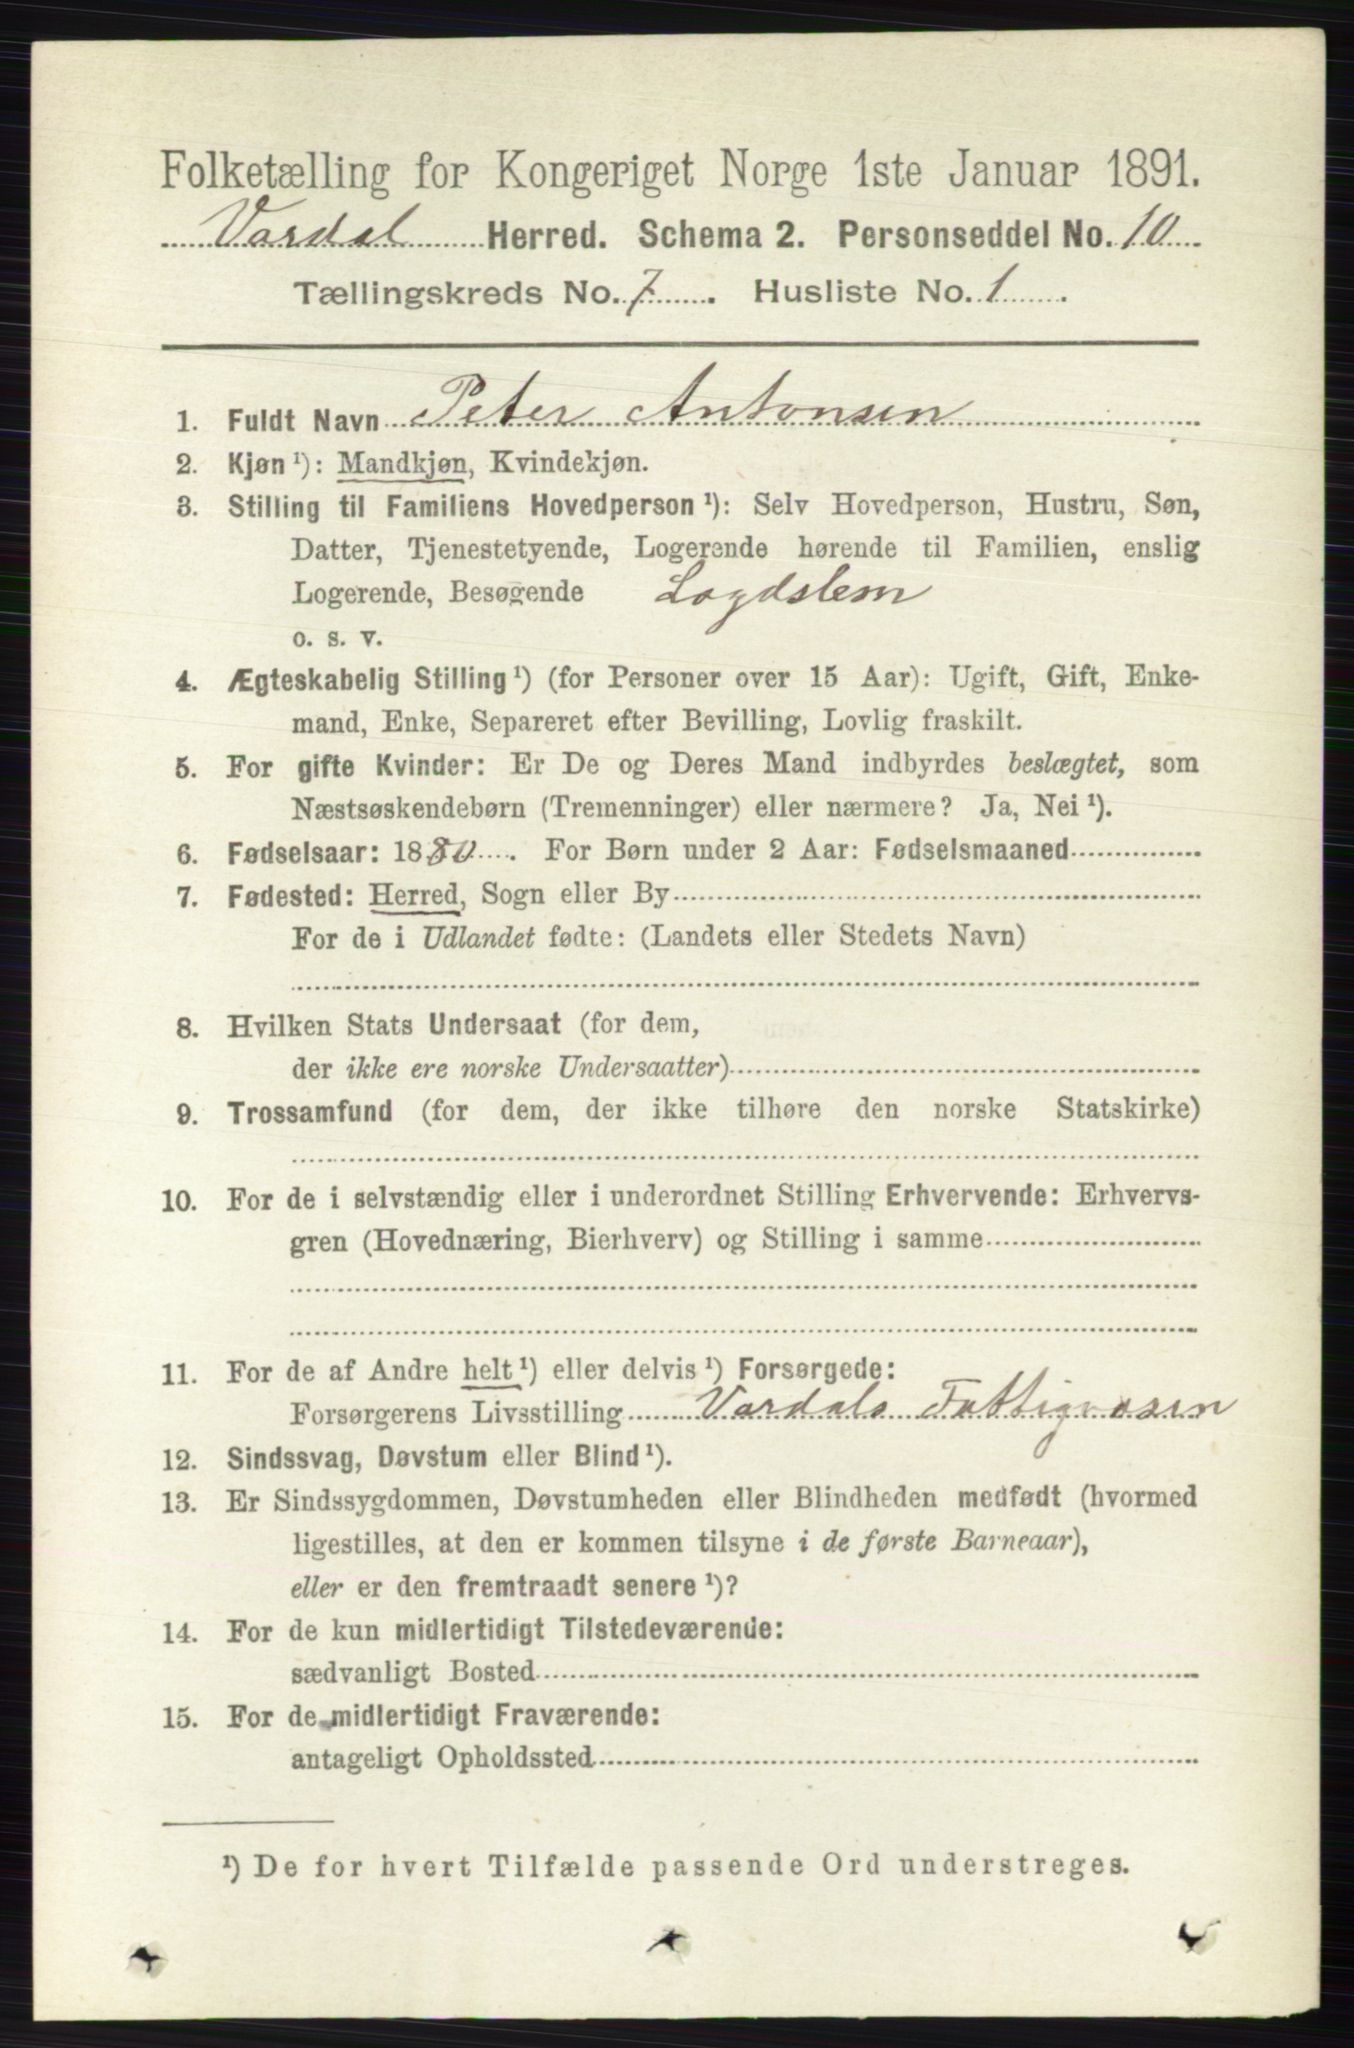 Folketælling for Kongeriget Norge 1ste Januar 1891.
Vardal Herred. Schema 2. Personseddel No. 10
Tællingskreds No. 7. Husliste No. 1.
1. Fuldt Navn Peter Antonsen
2. Kjøn ¹): Mandkjøn, Kvindekjøn.
3. Stilling til Familiens Hovedperson ¹): Selv Hovedperson, Hustru, Søn,
Datter, Tjenestetyende, Logerende hørende til Familien, enslig
Logerende, Besøgende Lægdslem
o. s. v.
4. Ægteskabelig Stilling ¹) (for Personer over 15 Aar): Ugift, Gift, Enke-
mand, Enke, Separeret efter Bevilling, Lovlig fraskilt.
5. For gifte Kvinder: Er De og Deres Mand indbyrdes beslægtet, som
Næstsøskendebørn (Tremenninger) eller nærmere? Ja, Nei ¹).
6. Fødselsaar: 1880. For Børn under 2 Aar: Fødselsmaaned
7. Fødested: Herred, Sogn eller By
For de i Udlandet fødte: (Landets eller Stedets Navn)
8. Hvilken Stats Undersaat (for dem,
der ikke ere norske Undersaatter)
9. Trossamfund (for dem, der ikke tilhøre den norske Statskirke)
10. For de i selvstændig eller i underordnet Stilling Erhvervende: Erhvervs-
gren (Hovednæring, Bierhverv) og Stilling i samme
11. For de af Andre helt ¹) eller delvis ¹) Forsørgede:
Forsørgerens Livsstilling Vardals Fattigvæsen
12. Sindssvag, Døvstum eller Blind ¹).
13. Er Sindssygdommen, Døvstumheden eller Blindheden medfødt (hvormed
ligestilles, at den er kommen tilsyne i de første Barneaar),
eller er den fremtraadt senere ¹)?
14. For de kun midlertidigt Tilstedeværende:
sædvanligt Bosted
15. For de midlertidigt Fraværende:
antageligt Opholdssted
¹) De for hvert Tilfælde passende Ord understreges.